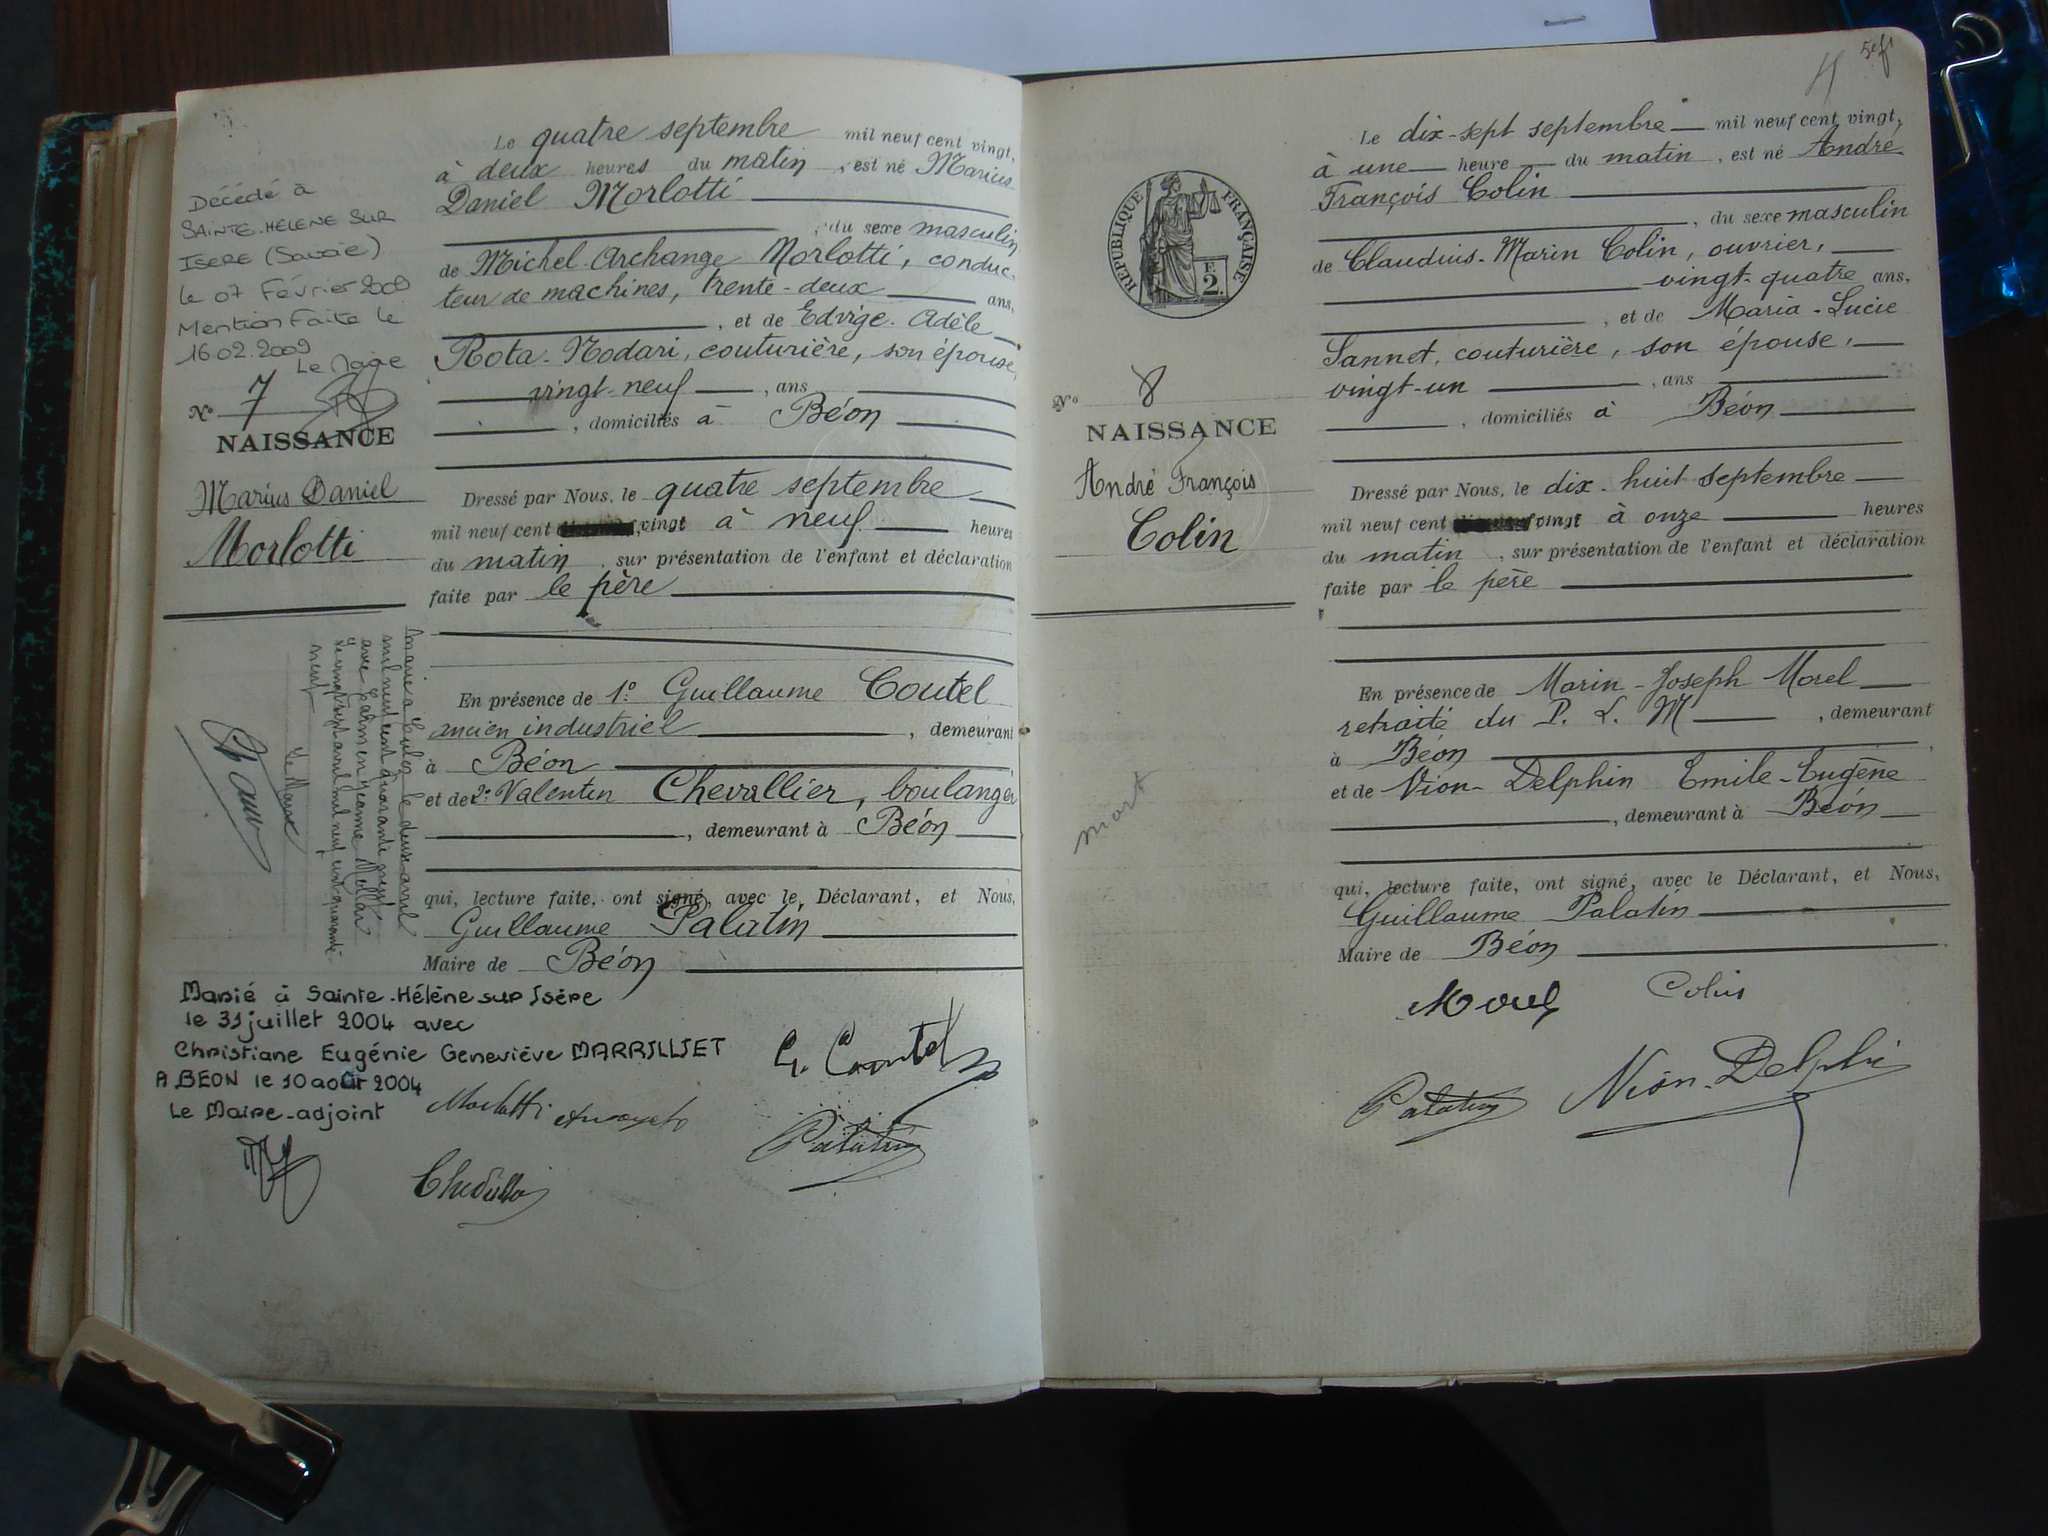 Le quatre septembre mil neuf cent vingt,
à deux heures du matin, est né Marius
Daniel Morlotti
, du sexe masculin
de Michel Archange Morlotti, conduc-
teur de machines, trente-deux ans,
, et de Edvige Adèle
Rota-Nodari, couturière, son épouse,
vingt-neuf, ans
, domiciliés à Béon
Dressé par Nous, le quatre septembre
mil neuf cent vingt à neuf heures
du matin, sur présentation de l'enfant et déclaration
faite par le père
En présence de 1º Guillaume Coutel
ancien industriel, demeurant
à Béon
et de 2º Valentin Chevallier, boulanger
, demeurant à Béon
qui, lecture faite, ont signé, avec le Déclarant, et Nous,
Guillaume Palatin
Maire de Béon
Décédé à
SAINTE-HELENE SUR
ISERE (Savoie)
le 07 Février 2009
Mention Faite le
16.02.2009
Le Maire
Nº 7
NAISSANCE
Marius Daniel
Morlotti
Marié à Culoz le deux avril
mil neuf cent quarante neuf
avec Carmen Jeanne
le vingt sept avril mil neuf cent quarante
neuf
Le Maire
Marié à Sainte-Hélène sur Isère
le 31 juillet 2004 avec
Christiane Eugénie Geneviève MARRILLIET
A BEON le 10 août 2004
Le Maire-adjoint
Morlotti
G. Coutel
Palatin
5
Le dix-sept septembre mil neuf cent vingt,
à une heure du matin, est né André
François Colin
, du sexe masculin
de Claudius-Marin Colin, ouvrier,
vingt-quatre ans,
, et de Maria-Lucie
Sannet, couturière, son épouse,
vingt-un, ans
, domiciliés à Béon
Dressé par Nous, le dix-huit septembre
mil neuf cent vingt à onze heures
du matin, sur présentation de l'enfant et déclaration
faite par le père
En présence de Marin-Joseph Morel
retraité du P. L. M, demeurant
à Béon
et de Vion-Delphin Emile-Eugène
, demeurant à Béon
qui, lecture faite, ont signé, avec le Déclarant, et Nous,
Guillaume Palatin
Maire de Béon
REPUBLIQUE FRANÇAISE
F.
2.
Nº 8
NAISSANCE
André François
Colin
mort
Morel Colin
Palatin Vion-Delphin